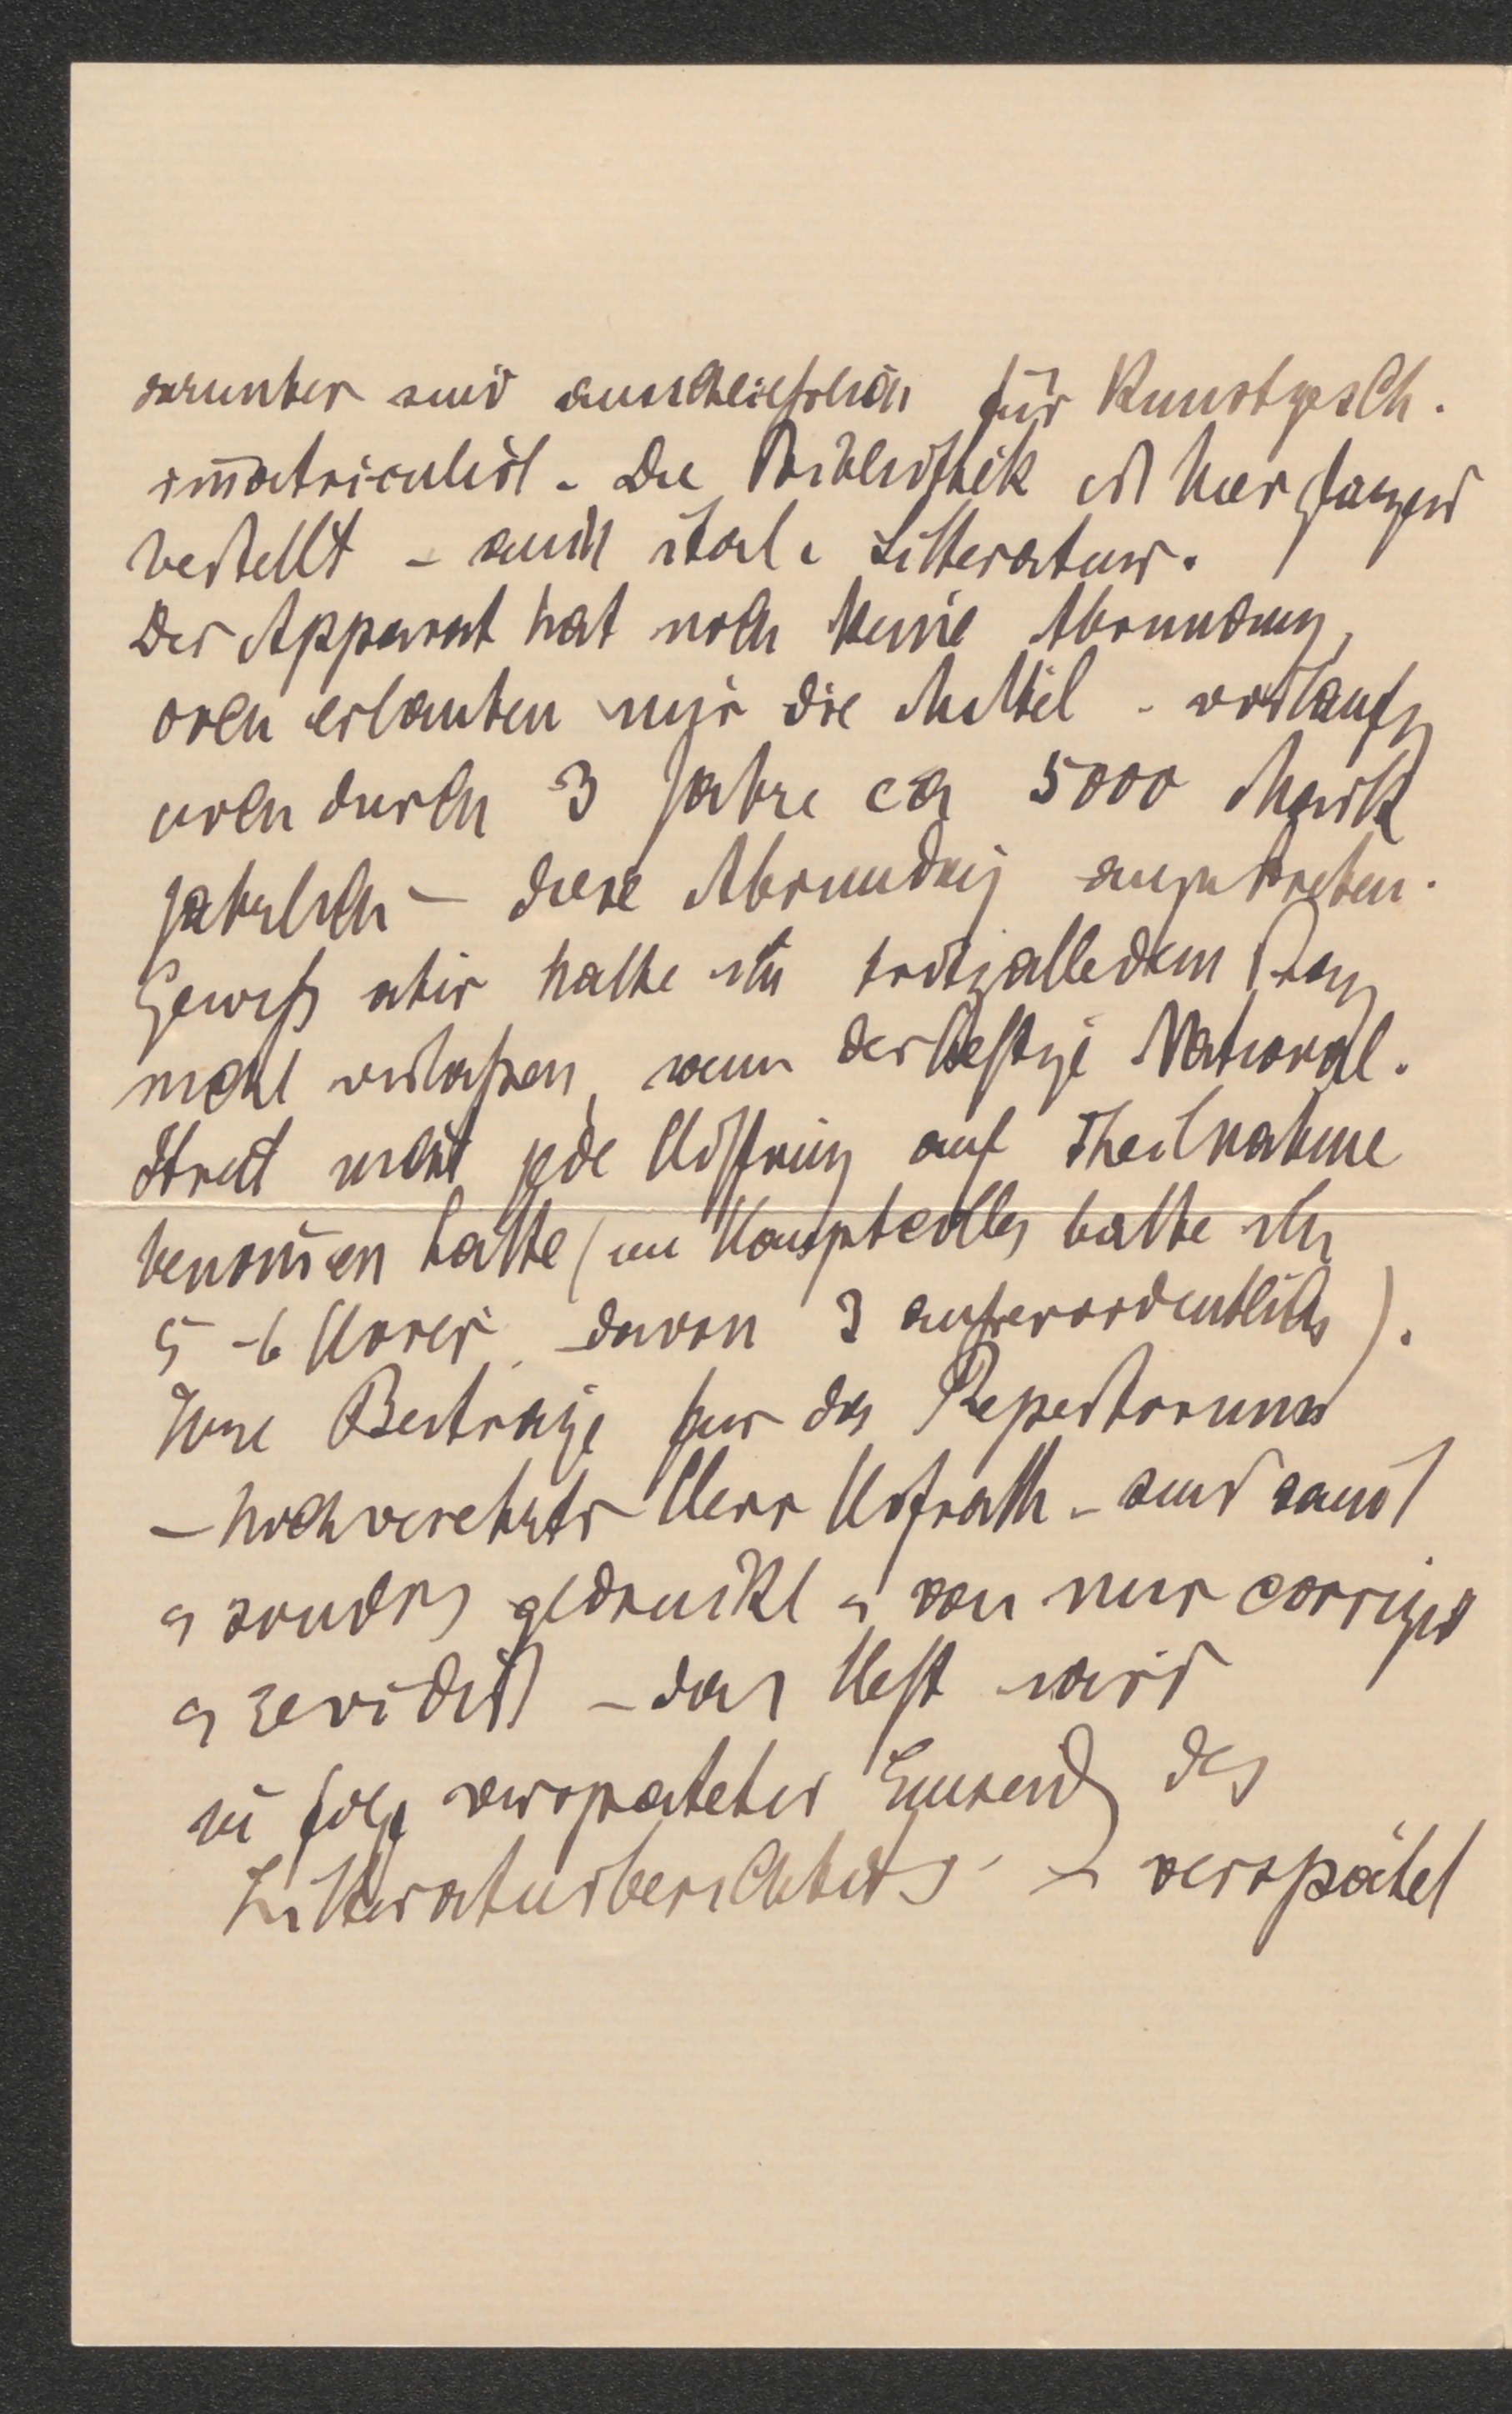 darunter sind ausschließlich für Kunstgesch.
im̅atriculirt. Die Bibliothek ist hier
bestellt – auch ital. Litteratur.
Der Apparat hat noch keine Abrundung,
doch erlauben mir die Mittel – vorläufig
noch durch 3 Jahre ca 5000 Mark
jährlich – diese Abrundung anzustreben.
Gewiß aber hätte ich trotzalledem Prag
nicht verlaßen, wenn der heftige National-
streit nicht jede Hoffnung auf Theilnahme
benom̅en hätte (im Hauptcolleg hatte ich
5–6 Hörer, davon 3 außerordentliche).
Ihre Beiträge für das Repertorium
– hochverehrter Herr Hofrath – sind samt
u sonders gedruckt u von mir corrigirt
u revidirt – das Heft wird
in folge verspäteter Einsendg des
Litteraturberichtes verspätet